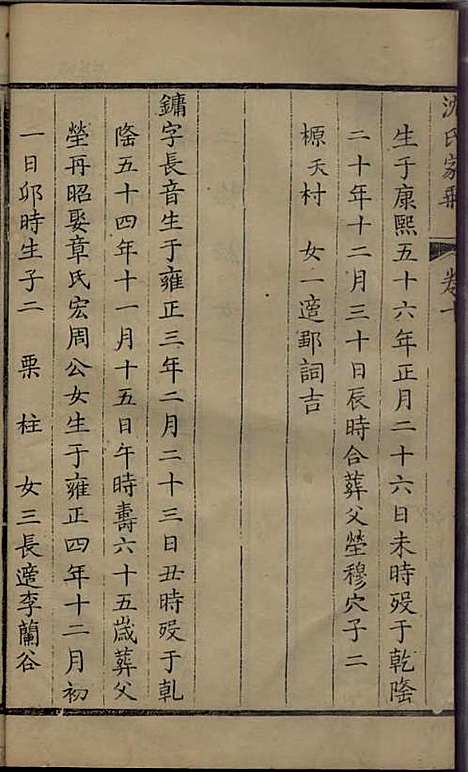 沈氏家乘 卷十
生于康熙五十六年正月二十六日未時殁于乾隆
二十年十二月三十日辰時合葬父塋穆穴子二
榞天村 女一適鄞詞吉
鏞字長音生于雍正三年二月二十三日丑時殁于乹
隆五十四年十一月十五日午時壽六十五歲葬父
塋冉昭娶章氏宏周公女生于雍正四年十二月初
一日卯時生子二 栗 柱 女三長適李蘭谷